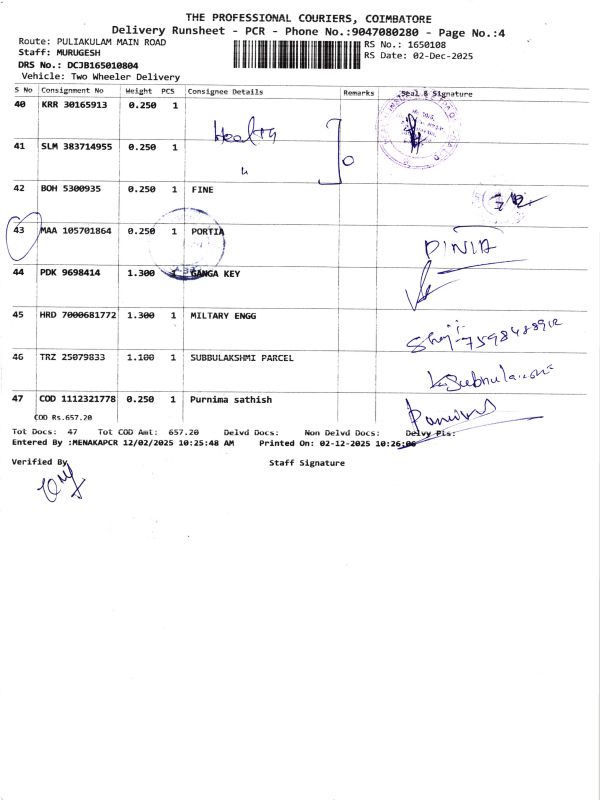 THE PROFESSIONAL COURIERS, COIMBATORE
Delivery Runsheet - PCR - Phone No.:9047080280 - Page No.:4
Route: PULIAKULAM MAIN ROAD
RS No.: 1650108
Staff: MURUGESH
RS Date: 02-Dec-2025
DRS No.: DCJB165010804
Vehicle: Two Wheeler Delivery
S No Consignment No Weight PCS Consignee Details Remarks Seal & Signature
40 KRR 30165913 0.250 1
41 SLM 383714955 0.250 1 "
42 BOH 5300935 0.250 1 FINE
43 MAA 105701864 0.250 1 PORTIA
44 PDK 9698414 1.300 1 GANGA KEY
45 HRD 7000681772 1.300 1 MILTARY ENGG
46 TRZ 25079833 1.100 1 SUBBULAKSHMI PARCEL
47 COD 1112321778 0.250 1 Purnima sathish
COD Rs.657.20
Tot Docs: 47 Tot COD Amt: 657.20 Delvd Docs: Non Delvd Docs: Delvy Pis:
Entered By :MENAKAPCR 12/02/2025 10:25:48 AM Printed On: 02-12-2025 10:26:06
Verified By Staff Signature